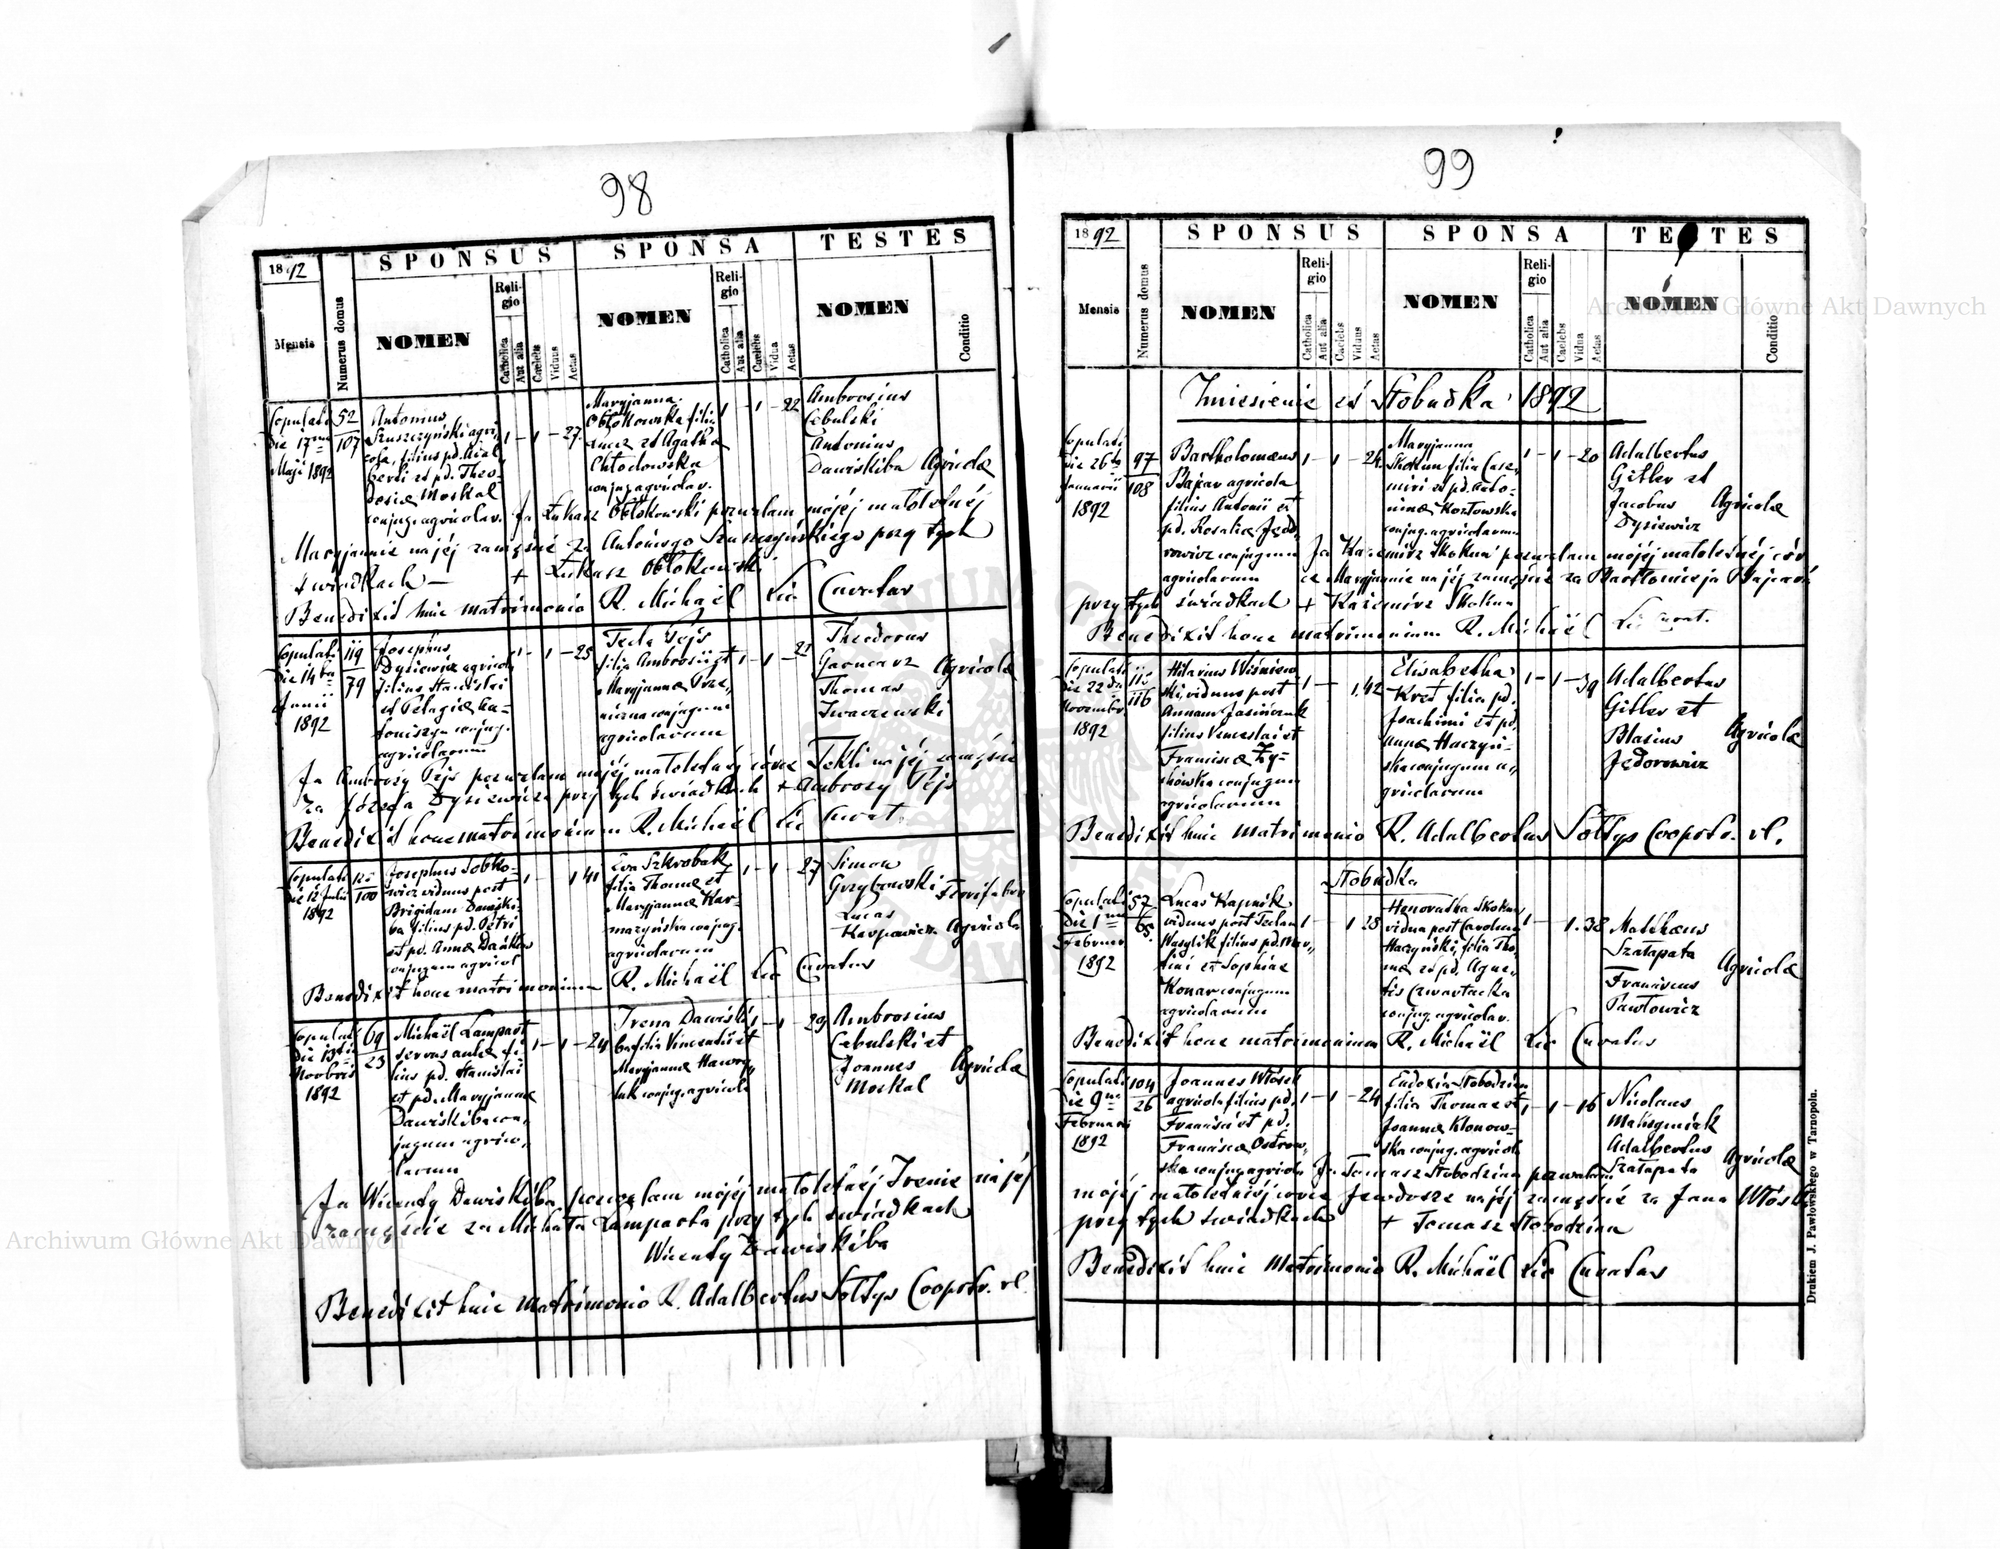 98
1892
SPONSUS
SPONSA
TESTES
Mensis
Numerus domus
NOMEN
Religio
Catholica
Aut alia
Caelebs
Viduus
Aetas
NOMEN
Religio
Catholica
Aut alia
Caelebs
Vidua
Aetas
NOMEN
Conditio
Copulati
die 17ma
Maji 1892
52
107
Antonius
cola, filius pd. Adal
berti et pd. Theo-
dosiæ Moskal
conjug. agricolar.
1 - 1 - 27
Maryjanna
filia
Lucæ et Agatha
Chłodowska
conjug. agricolar.
1 - 1 - 22
Ambrosius
Cebulski
Antonius
Dawiskiba
Agricolæ
Ja Łukasz pozwalam mojéj małoletnéj
Maryjannie na jéj zamęście za Antoniego przy tych
świadkach — + Łukasz
Benedixit huic matrimonio R. Michaël Lic Curatus
Copulati
die 14ta
Junii
1892
119
79
Josephus
Dysiewicz agricola
filius Stanislai
et Pelagiæ
conjug.
agricolarum
1 - 1 - 25
Tecla Pejs
filia Ambrosii et
Maryjannæ
conjugum
agricolarum
1 - 1 - 21
Theodorus
Garncarz
Thomas
Iwaczewski
Agricolæ
Ja Ambroży Pejs pozwalam mojéj małoletniéj córce Tekli na jéj zamęście
za Józefa Dysiewicza przy tych świadkach + Ambroży Pejs
Benedixit hunc matrimonium R. Michaël Lic Curat.
Copulati
die 12 Julii
1892
100
Josephus Sobko-
wicz viduus post
Brigidam Dawiski-
ba filius pd. Petri
et pd. Annæ
conjugum agricol
1 - 1 41
Eva Szkrobak
filia Thomæ et
Maryjannæ Kar-
conjug.
agricolarum
1 - 1 - 27
Simon
Grzybowski
Lucas
Karpowicz
Agricola
Benedixit hunc matrimonium R. Michaël Lic Curatus
Copulati
die
Novbris
1892
69
23
Michaël Lampart
fi-
lius pd. Stanislai
et pd. Maryjannæ
Dawiskiba con-
jugum agrico-
larum
1 - 1 - 24
Irena Dawiski
ba filia Vincentii et
Maryjannæ
conjug. agricola
1 - 1 - 29
Ambrosius
Cebulski et
Joannes
Moskal
Agricolæ
Ja Wicenty Dawiskiba pozwalam mojéj małoletnéj Irenie na jéj
zamęście za Michała Lamparta przy tych świadkach
Wicenty Dawiskiba
Benedixit huic matrimonio R. Adalbertus Sołtys Cooptr. rl.
99
1892
SPONSUS
SPONSA
TESTES
Mensis
Numerus domus
NOMEN
Religio
Catholica
Aut alia
Caelebs
Viduus
Aetas
NOMEN
Religio
Catholica
Aut alia
Caelebs
Vidua
Aetas
NOMEN
Conditio
Zniesienie et Słobudka 1892
Copulati
die 26ta
Januarii
1892
97
108
Bartholomæus
Bajar agricola
filius Antonii et
pd. Rosaliæ Jędo
rowicz conjugum
agricolarum
1 - 1 - 24
Maryjanna
Skokun filia Case-
miri et pd. Anto-
ninæ Kozłowska
conjug. agricolarum
1 - 1 - 20
Adalbertus
Gitler et
Jacobus
Dysiewicz
Agricolæ
Ja Kazimirz Skokun pozwalam mojéj małoletnéj cór
ce Maryjannie na jéj zamęście za Bartłomieja Bajara
przy tych świadkach + Kazimirz Skokun
Benedixit hunc matrimonium R. Michaël Lic Curat.
Copulati
die 22da
Novembr.
1892
116
Hilarius Wiśniew
ski viduus post
Annam
filius Venceslai et
Franciscæ Ży-
chowska conjugum
agricolarum
1 - 1. 42
Elisabetha
Kret filia pd.
Joachimi et pd.
Annæ Haczyń-
ska conjugum a-
gricolarum
1 - 1 - 39
Adalbertus
Gitler et
Blasius
Jędorowicz
Agricolæ
Benedixit huic matrimonio R. Adalbertus Sołtys Cooptr. rl.
Słobudka
Copulati
die 1ma
Februar
1892
57
65
Lucas Kapnik
viduus post Teclam
Wasylik filius pd. Mar-
tini et Sophiæ
Konar conjugum
agricolarum
1 - 1 28
Honoratha Skokun
vidua post Carolum
Haczyński, filia Tho-
mæ et pd. Agne-
tis Czwartacka
conjug. agricolar.
1 - 1. 38
Mathæus
Szałapata
Franciscus
Pawłowicz
Agricolæ
Benedixit hunc matrimonium R. Michaël Lic Curatus
Copulati
die 9na
Februarii
1892
104
26
Joannes Włosek
agricola filius pd.
Francisci et pd.
Franciscæ Ostrow-
ska conjug. agricola
1 - 1 - 24
Eudoxia Słobodzian
filia Thomæ et
Joannæ Klonow-
ska conjug. agricol.
1 - 1 - 16
Nicolaus
Maksymiak
Adalbertus
Szałapata
Agricolæ
Ja Tomasz Słobodzian pozwalam
mojéj małoletniéj córce Jewdosze na jéj zamęście za Jana Włosk
przy tych świadkach + Tomasz Słobodzian
Benedixit huic Matrimonio R. Michaël Lic Curatus
Drukiem J. Pawłowskiego w Tarnopolu.
Archiwum Główne Akt Dawnych
Archiwum Główne Akt Dawnych